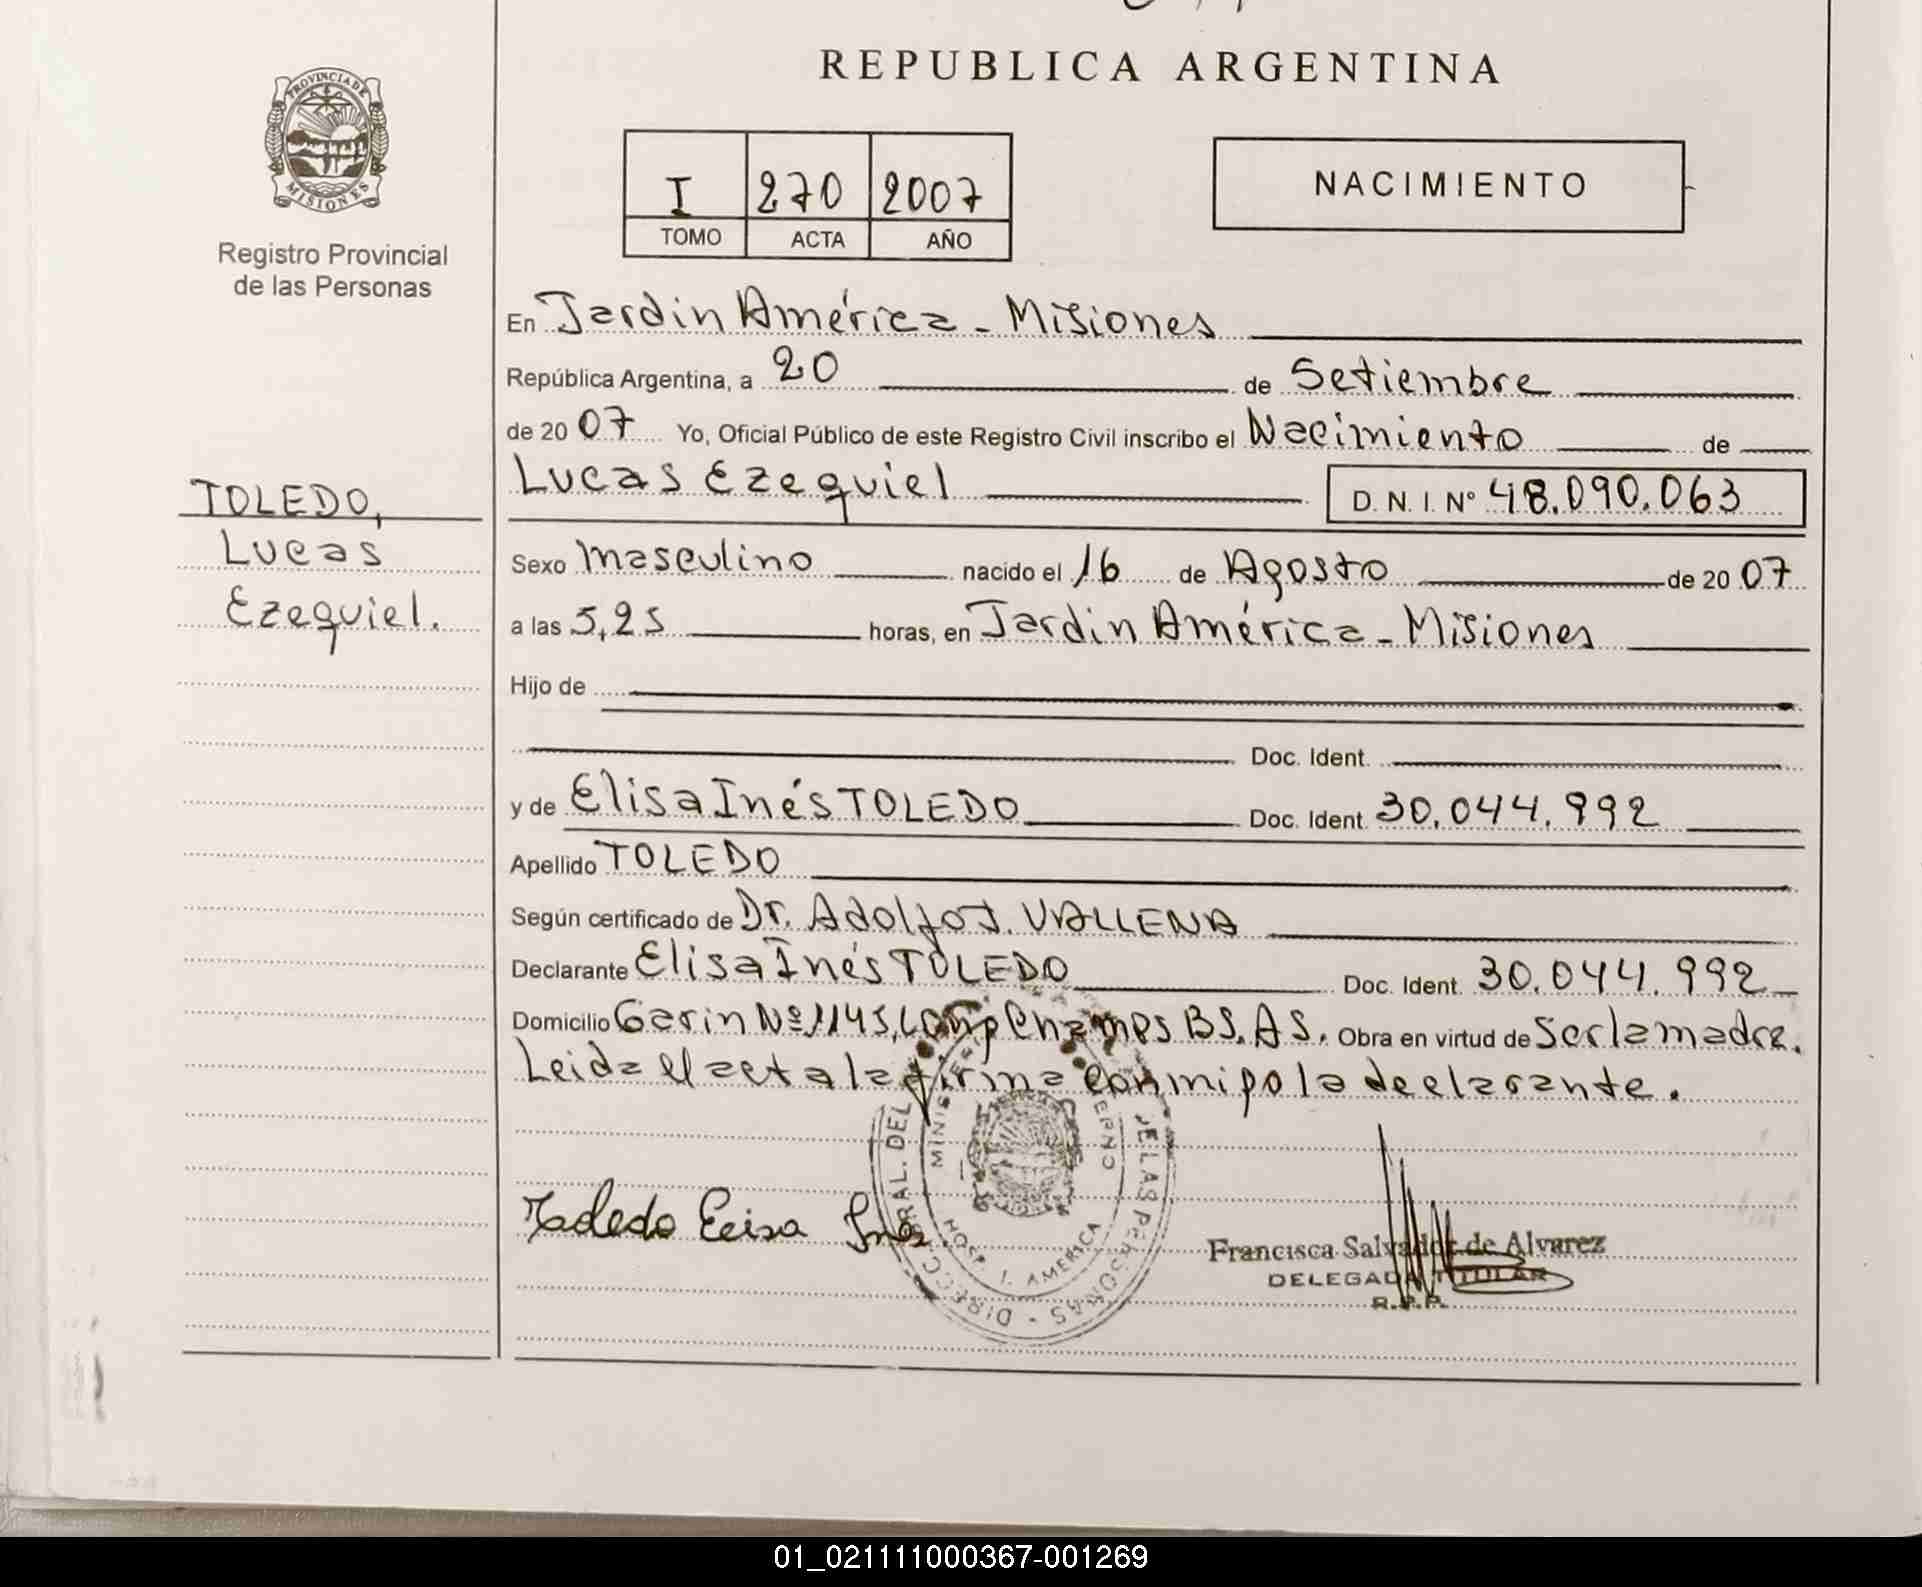 REPUBLICA ARGENTINA
PROVINCIA DE MISIONES
Registro Provincial
de las Personas
I 270 2007
TOMO ACTA AÑO
NACIMIENTO
En Jardin América - Misiones
República Argentina, a 20 de Setiembre
de 20 07 Yo, Oficial Público de este Registro Civil inscribo el Nacimiento de
Lucas Ezequiel D. N. I. Nº 48.090.063
TOLEDO,
Lucas
Ezequiel.
Sexo masculino nacido el 16 de Agosto de 20 07
a las 5,25 horas, en Jardin América - Misiones
Hijo de
Doc. Ident.
y de Elisa Inés TOLEDO Doc. Ident. 30.044.992
Apellido TOLEDO
Según certificado de Dr. Adolfo J. VALLENA
Declarante Elisa Inés TOLEDO Doc. Ident. 30.044.992
Domicilio Garin Nº 1145, Champs BS. AS. Obra en virtud de Ser la madre.
Leida el acta la firma con mi po la declarante.
Toledo Elisa Ines
DE LAS PERSONAS
HOSP. J. AMERICA
Francisca Salvador de Alvarez
DELEGADA TITULAR
R.P.P.
01_021111000367-001269